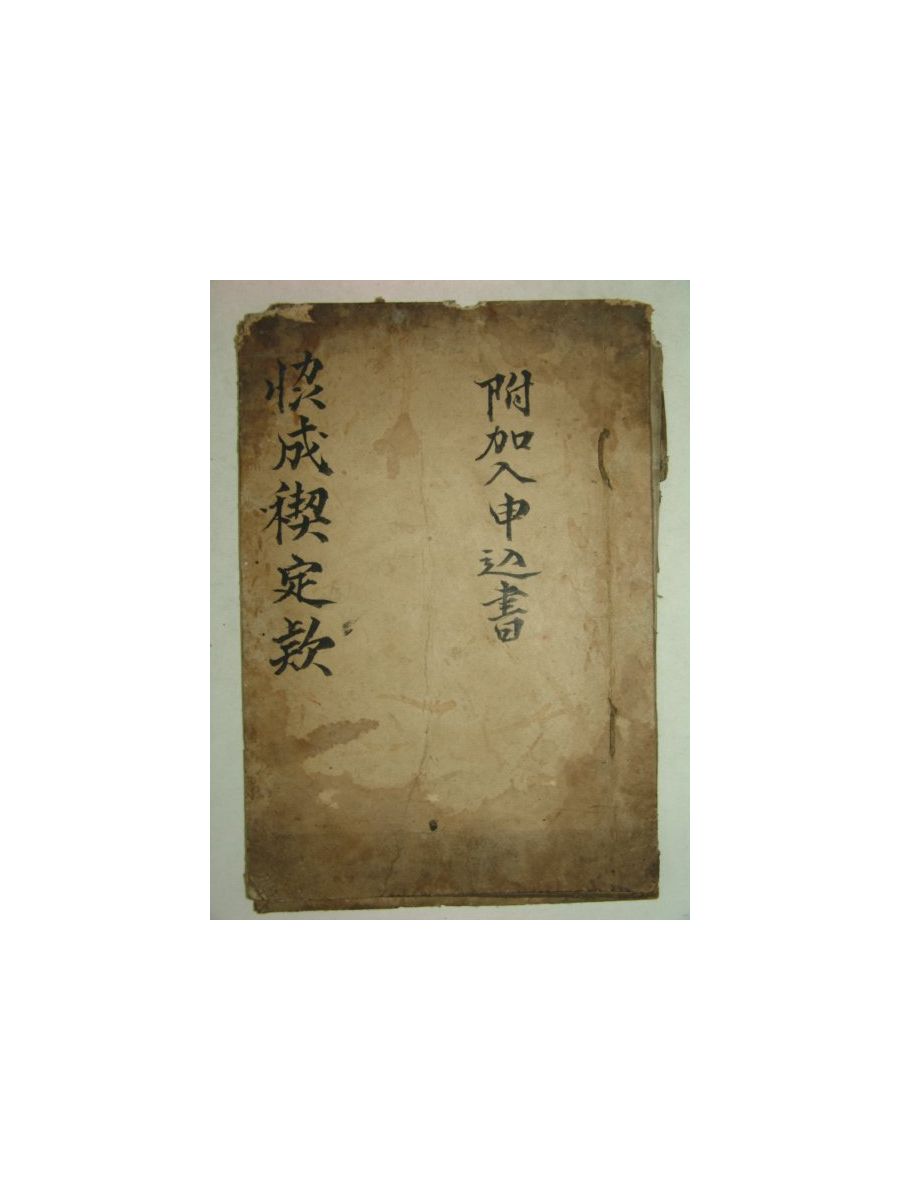 附加入申込書
恊成稧定欵